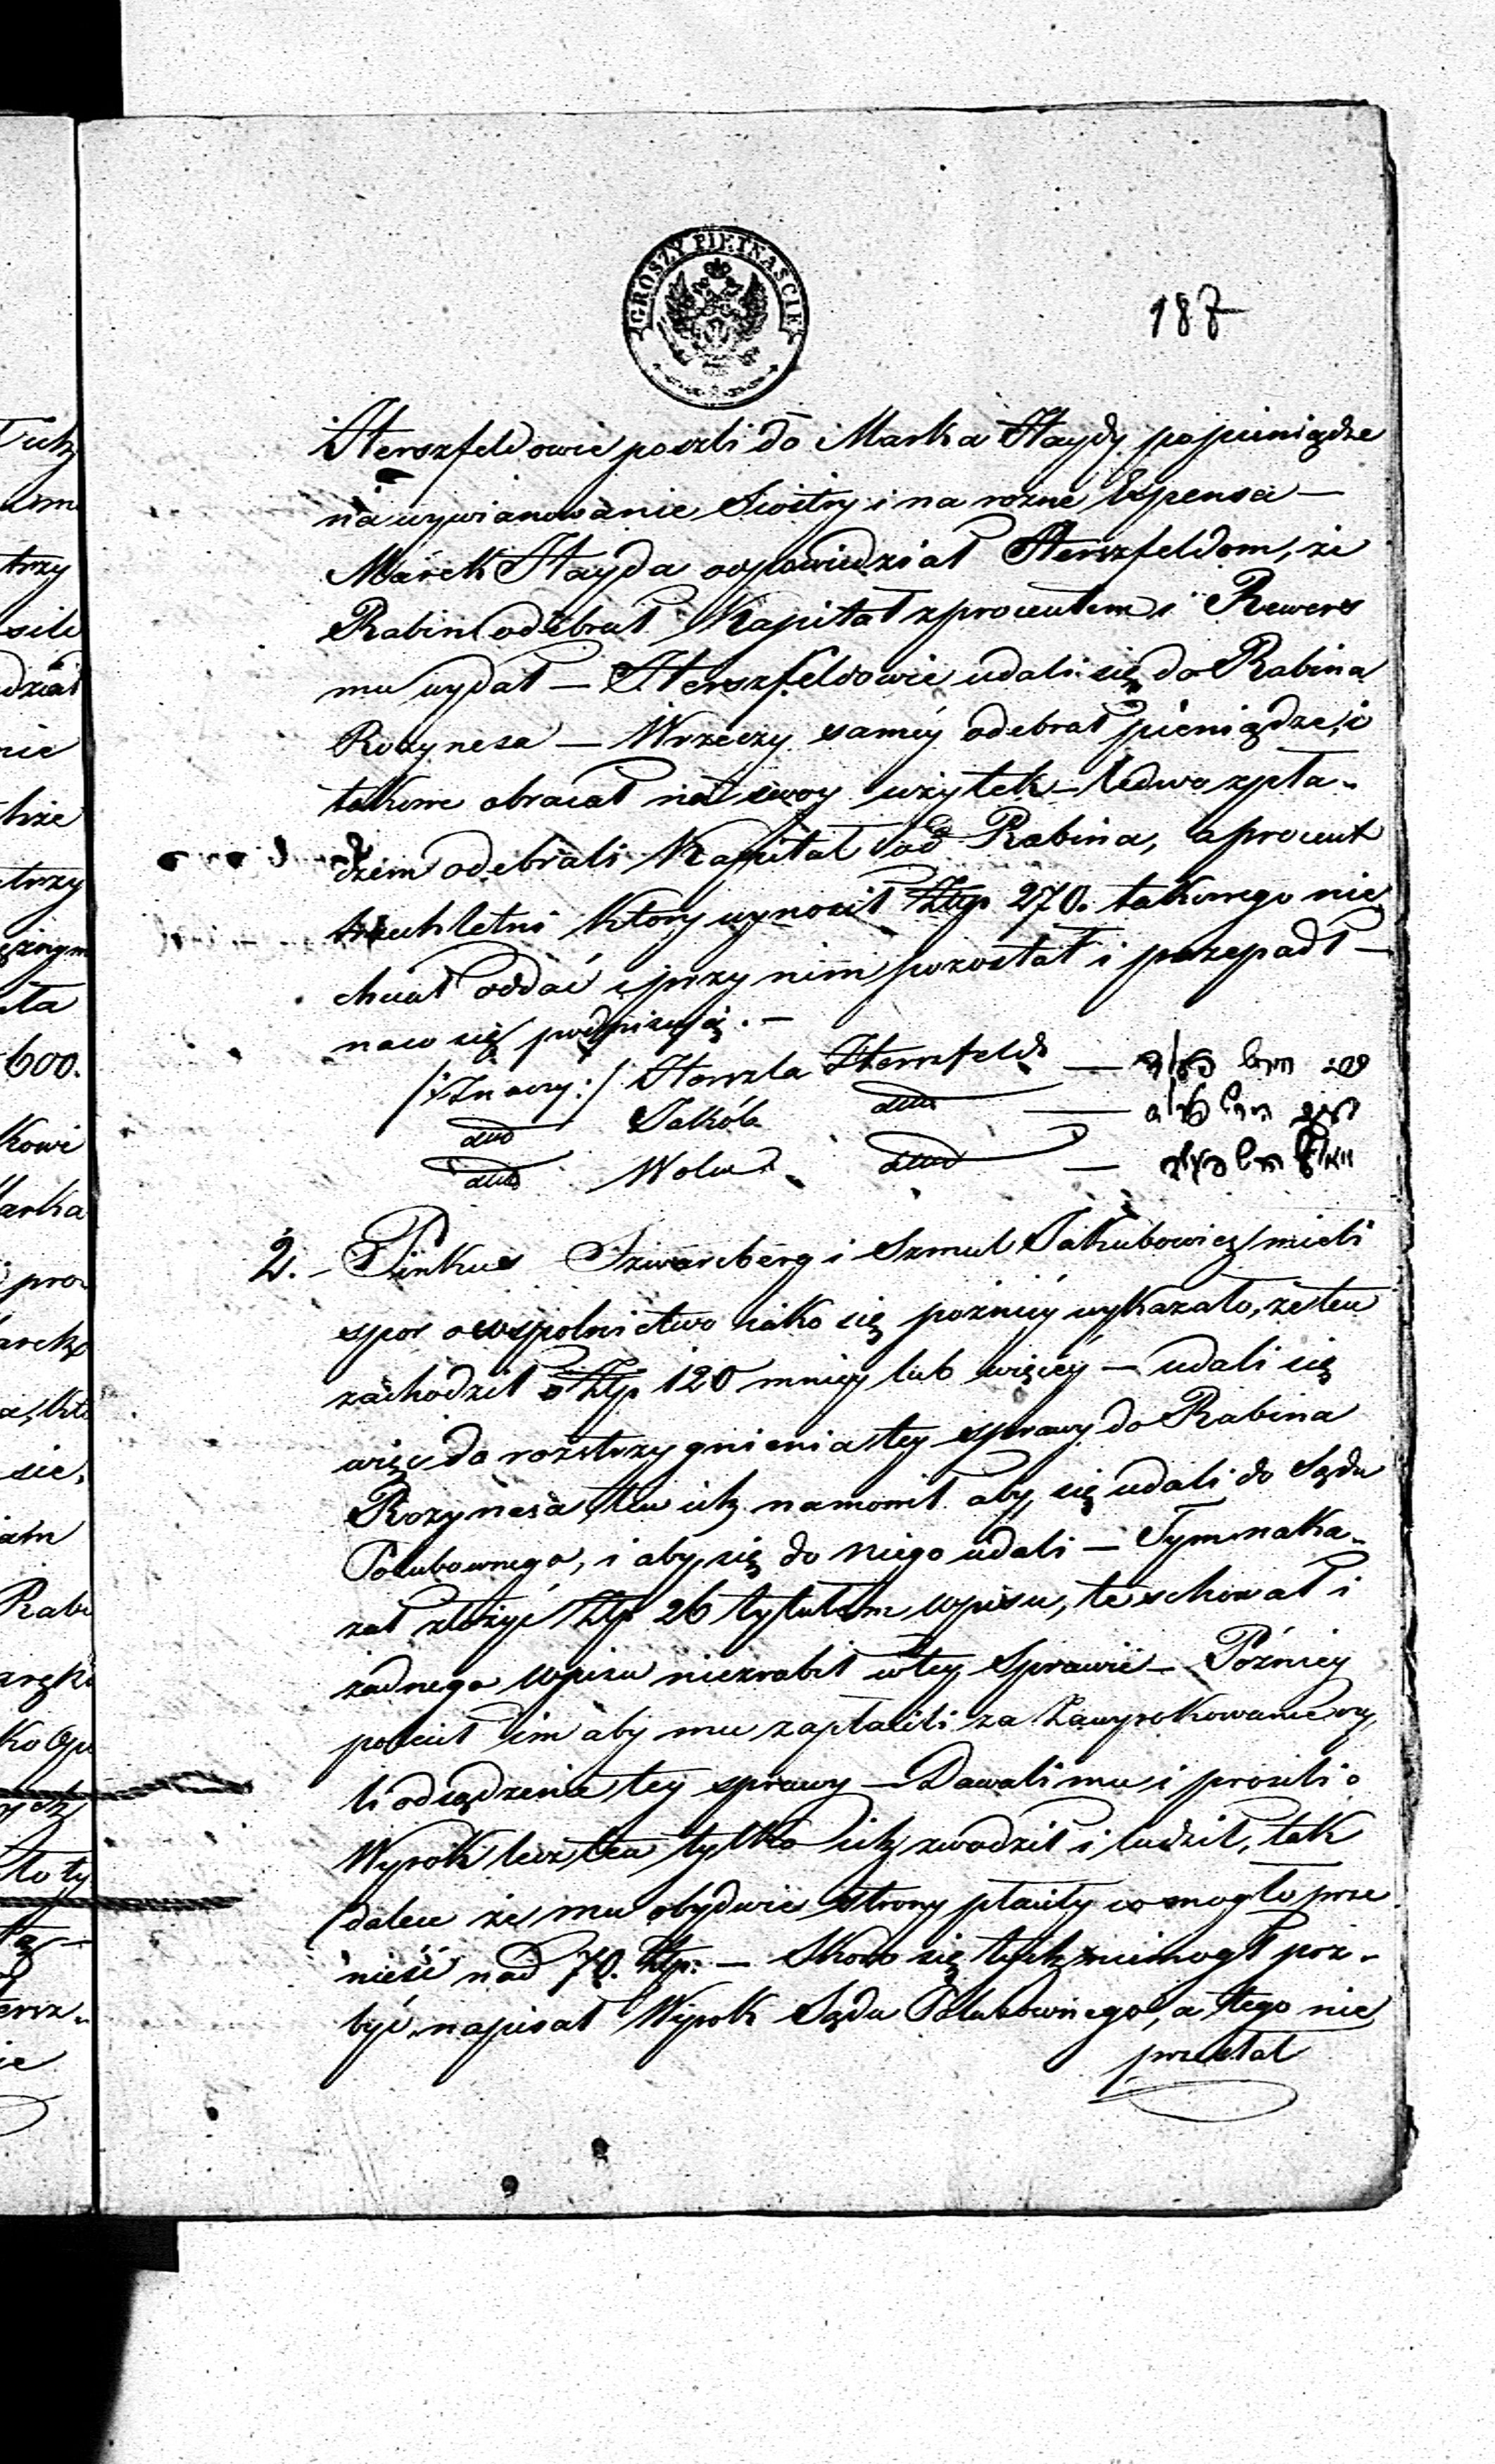 GROSZY PIĘTNAŚCIE
187
Herszfeldowie poszli do Marka Haydy po pieniądze
na wywianowanie Siostry i na rozne Expensa —
Marek Hayda odpowiedział Herszfeldom, że
Rabin odebrał Kapitał z procentem i Rewers
mu wydał — Herszfeldowie udali się do Rabina
Rozynesa — W rzeczy saméy odebrał pieniądze, i
takowe obracał na swoy użytek — ledwo z pła-
czem odebrali Kapitał od Rabina, a procent
trzechletni który wynosił Złtp 270. takowego nie
chciał oddać i przy nim pozostał i przepadł —
na co się podpisują. —
/:Znaczy:/ Herszla Herszfeld —
dtto Jakób dtto —
dtto Wolw dtto —
2. — Pinkus Szwarcberg i Szmul Jakubowicz mieli
spor o wspolnictwo iako się pozniéy wykazało, że ten
zachodził o Złp 120 mniey lub więcéy — udali się
więc do rozstrzygnienia tey sprawy do Rabina
Rozynesa ten ich namowił aby się udali do Sądu
Polubownego, i aby się do niego udali — Tym naka-
zał złożyć Złp 26 tytułem wpisu, te schował i
żadnego wpisu niezrobił w tey Sprawie — Pózniey
polecił im aby mu zapłacili za Zawyrokowanie czy
li odsądzenie tey sprawy — Dawali mu i prosili o
Wyrok lecz ten tylko ich zwodził i łudził, tak
dalece że mu obydwie strony płaciły co mogło prze
nieść nad 70. Złp: — Skoro się tych niemogł poz-
być, napisał Wyrok Sądu Polubownego, a tego nie
przestał